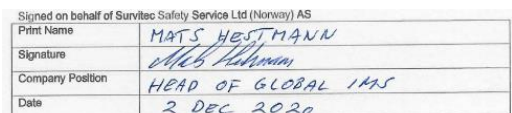 Signed on behalf of Survitec Safety Service Ltd (Norway) AS
Print Name MATS HESTMANN
Signature
Company Position HEAD OF GLOBAL IMS
Date 2 DEC 2020